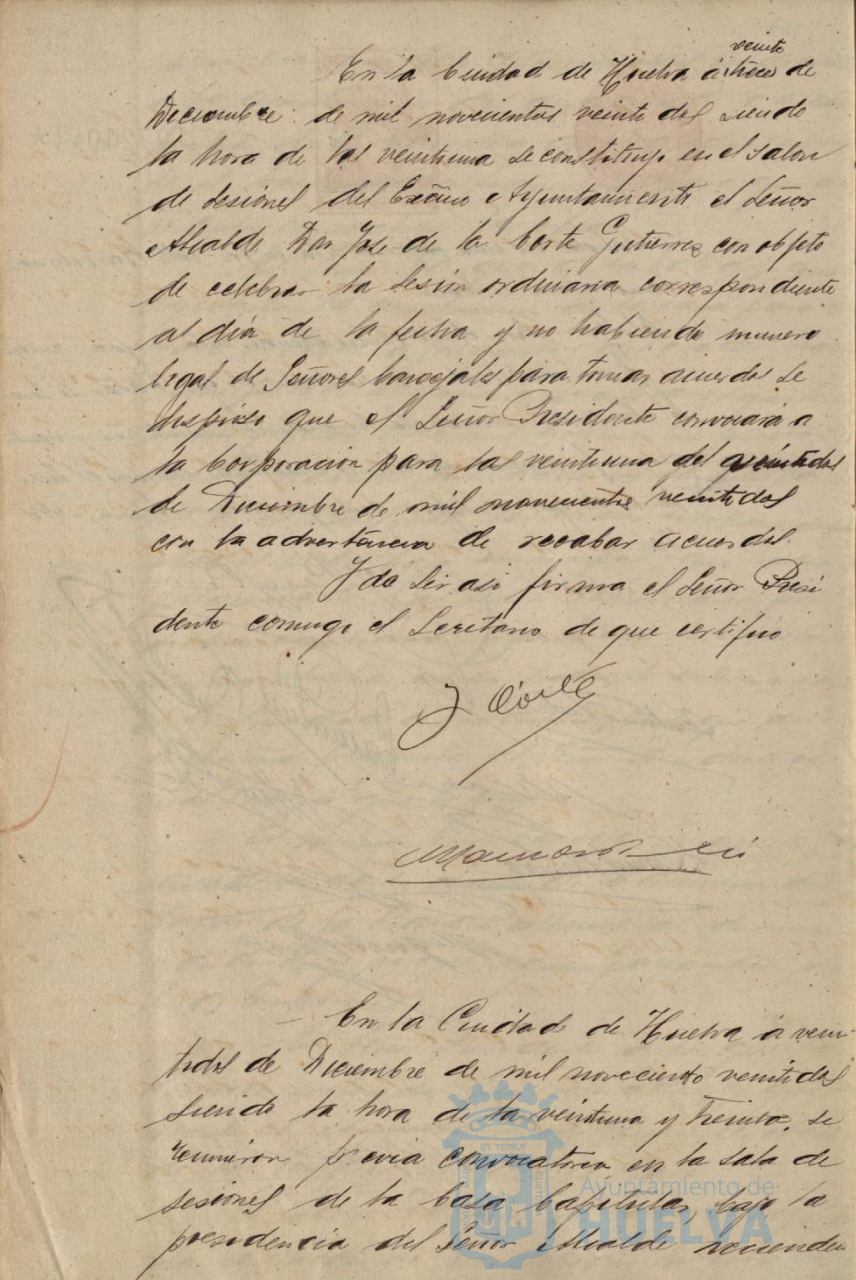 En la Ciudad de Huelva á trece de
veinte
Diciembre de mil novecientos veinte dos siendo
la hora de las veintiuna se constituyo en el salon
de sesiones del Excmo Ayuntamiento el Señor
Alcalde Don Jose de la Corte Gutierrez con objeto
de celebrar la sesión ordinaria correspondiente
al dia de la fecha y no habiendo numero
legal de Señores Concejales para tomar acuerdos se
dispuso que el Señor Presidente convocará a
la Corporación para las veintiuna del veintidos
de Diciembre de mil novecientos veintidos
con la advertencia de recabar acuerdos.
Y de ser asi firma el Señor Presi
dente conmigo el Secretario de que certifico
J Corte
En la Ciudad de Huelva á vein-
tidos de Diciembre de mil novecientos veintidos
siendo la hora de las veintiuna y treinta, se
reunieron previa convocatoria en la sala de
sesiones de la Casa Capitular, bajo la
presidencia del Señor Alcalde
Ayuntamiento de
HUELVA